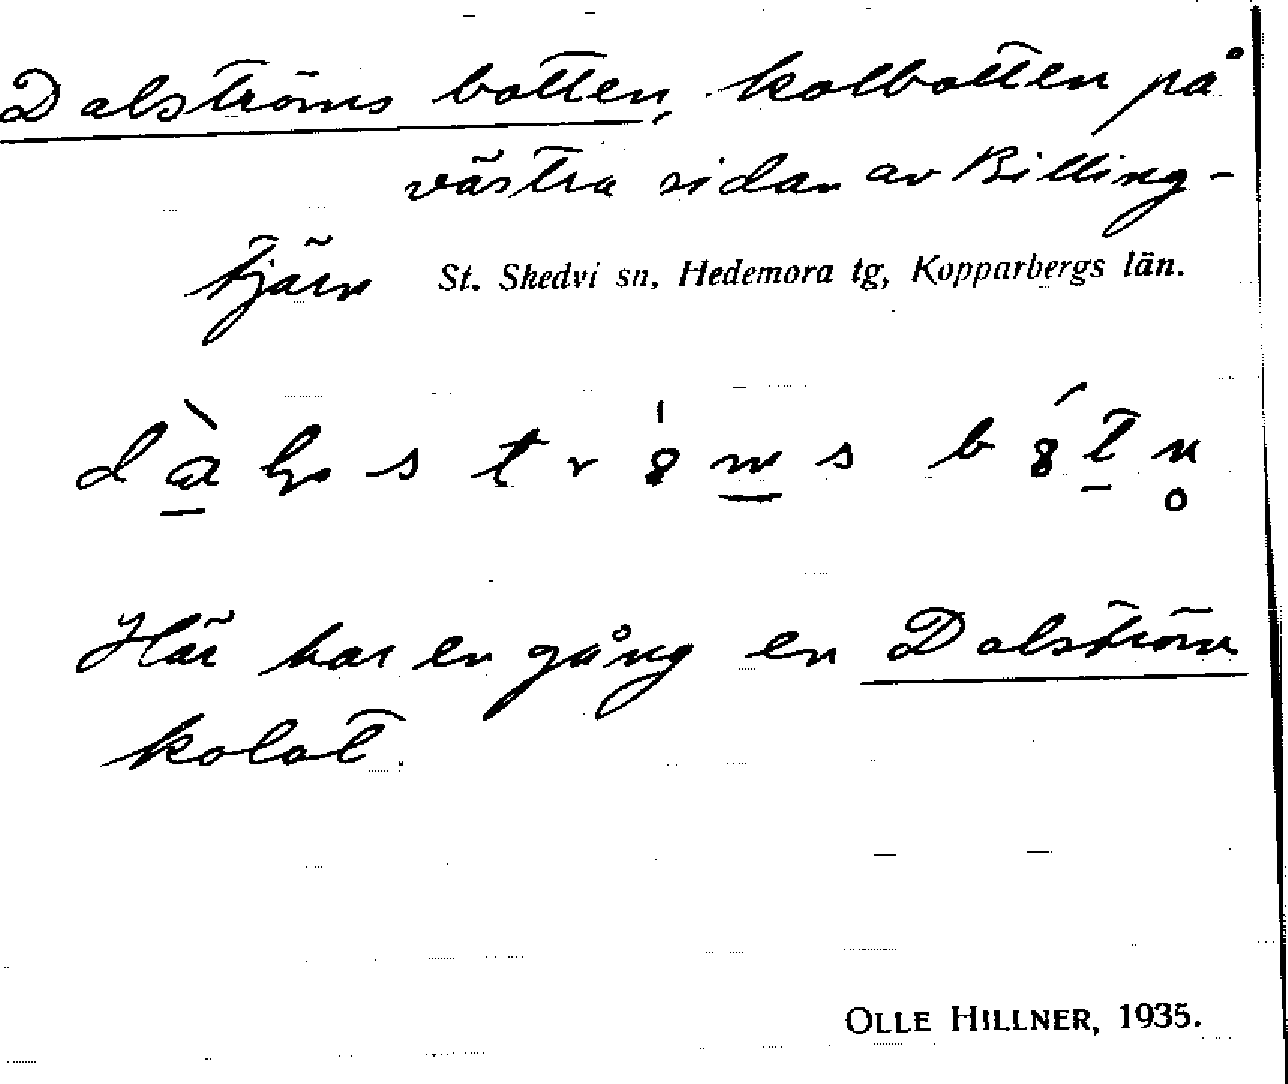 Dalströms botten, kolbotten på
västra sidan av Billing-
tjärn St. Skedvi sn, Hedemora tg, Kopparbergs län.
Här har en gång en Dalström
kolat.
OLLE HILLNER, 1935.